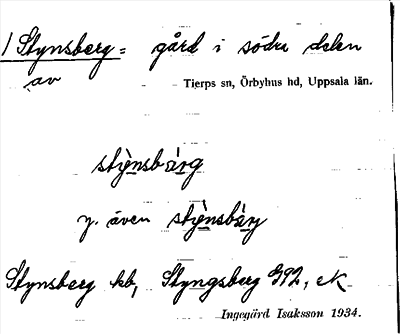 1 Stynsberg = gård i södra delen
av Tierps sn, Örbyhus hd, Uppsala län.
stỳnsbärg
y. även stỳnsbäry
Stynsberg kb, Styngsberg G92, ek
Ingegärd Isaksson 1934.